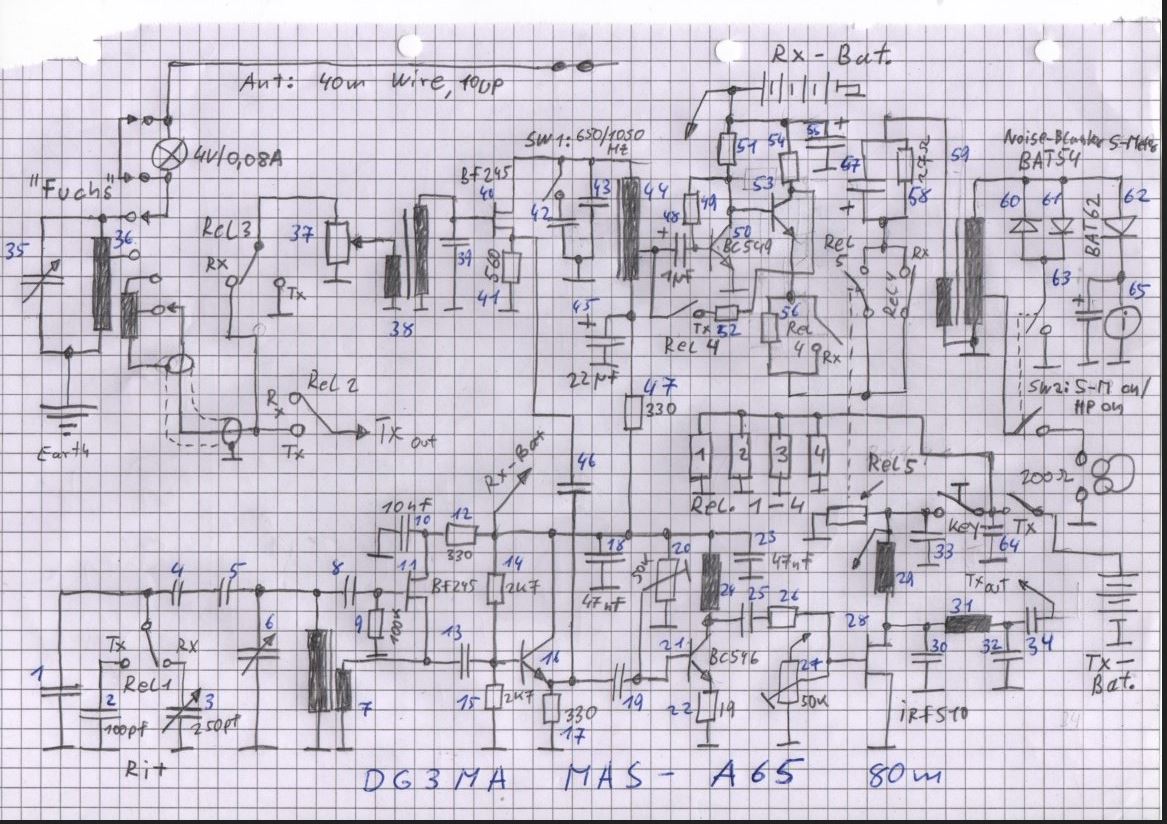 Rx-Bat.
Ant: 40m Wire, 10up
4V/0,08A
"Fuchs"
35
36
Rel3
Rx
Tx
37
38
39
BF245
40
560
41
SW1: 650/1050 Hz
42
43
44
45
22µF
46
47
330
48
1µF
49
50
BC549
51
52
Tx
Rel 4
53
54
55
+
56
Rel 4
Rx
57
+
58
27Ω
59
Rel 5
Rel 4
Rx
Noise-Blanker S-Meter
BAT54
60
61
62
BAT62
63
65
+
SW2: S-M on/
HP on
200Ω
Earth
Rel 2
Rx
Tx
Tx out
Rx-Bat
1
2
3
4
Rel. 1-4
Rel5
Key
Tx
33
64
Tx out
Tx-
Bat.
10nF
10
12
330
11
BF245
14
2K7
18
47nF
50k
20
23
47nF
24
25
26
29
28
31
30
32
34
iRF510
27
50k
21
BC546
22
19
19
16
330
17
15
2K7
13
9
100k
8
7
6
5
4
1
Tx
Rx
Rel1
2
100pf
3
250pf
Rit
34
DG3MA MAS-A65 80m